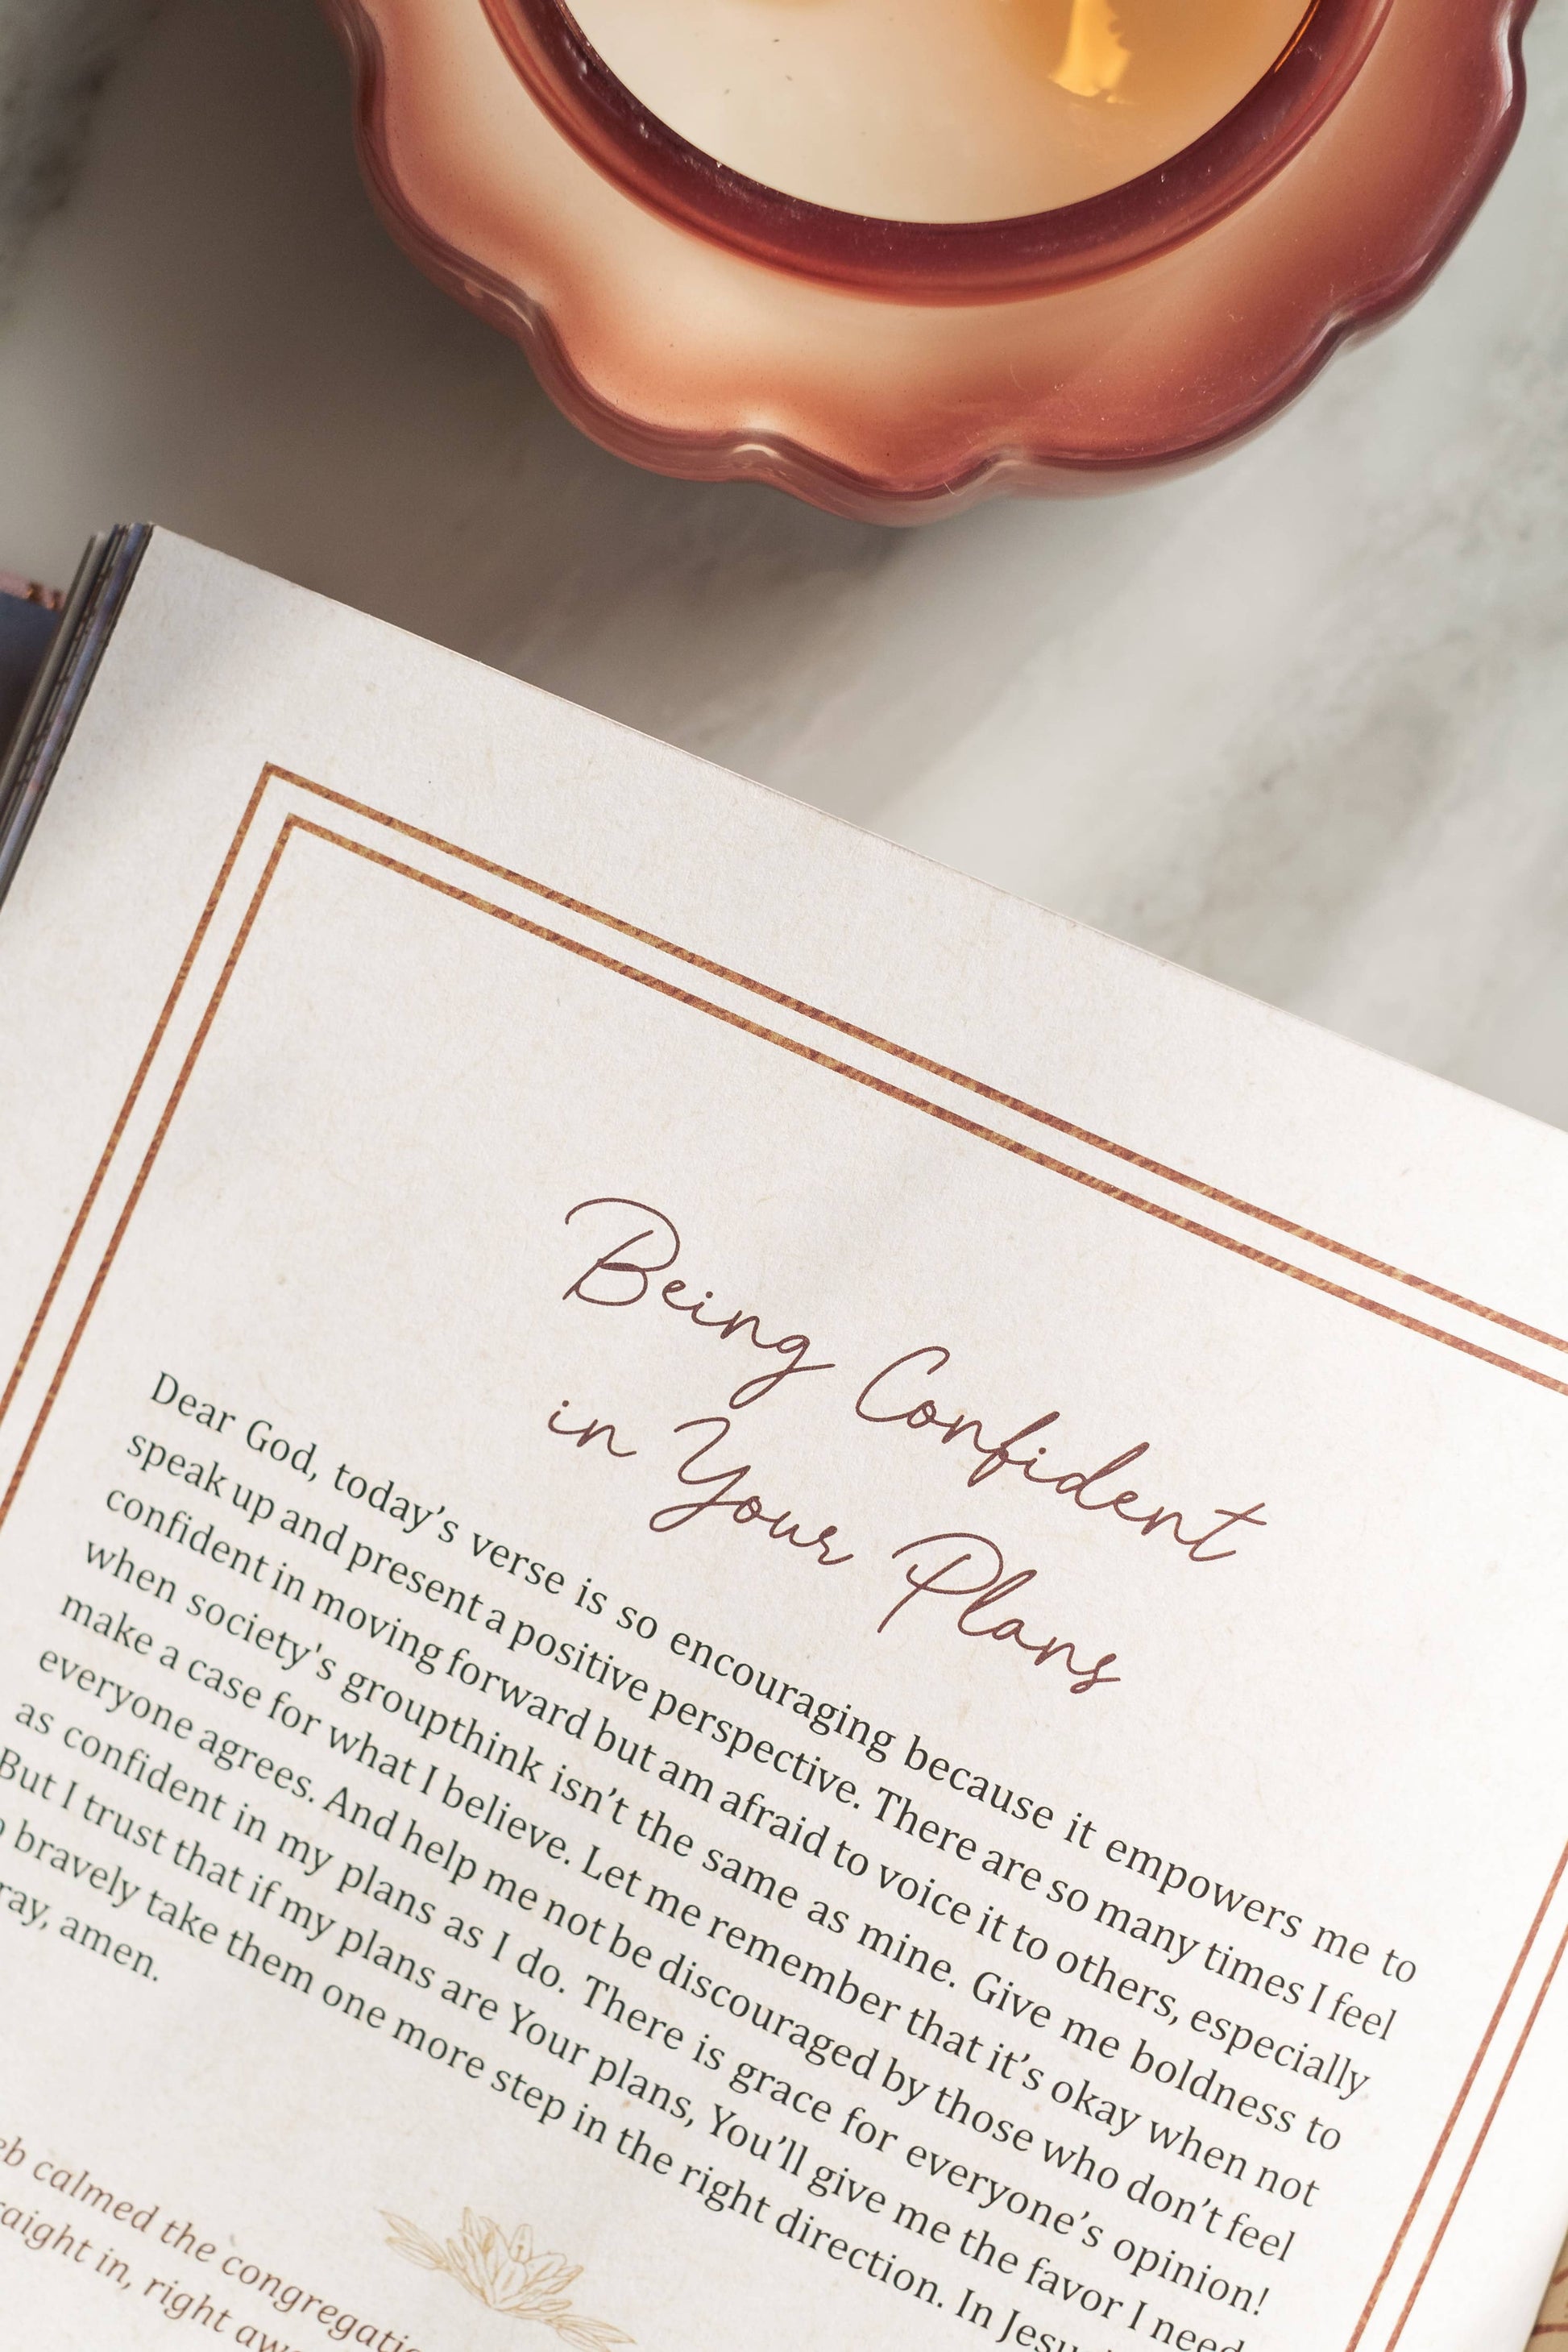 Being Confident
in Your Plans
Dear God, today’s verse is so encouraging because it empowers me to
speak up and present a positive perspective. There are so many times I feel
confident in moving forward but am afraid to voice it to others, especially
when society's groupthink isn’t the same as mine. Give me boldness to
make a case for what I believe. Let me remember that it’s okay when not
everyone agrees. And help me not be discouraged by those who don’t feel
as confident in my plans as I do. There is grace for everyone’s opinion!
But I trust that if my plans are Your plans, You’ll give me the favor I need
bravely take them one more step in the right direction. In
amen.
calmed the
in, right